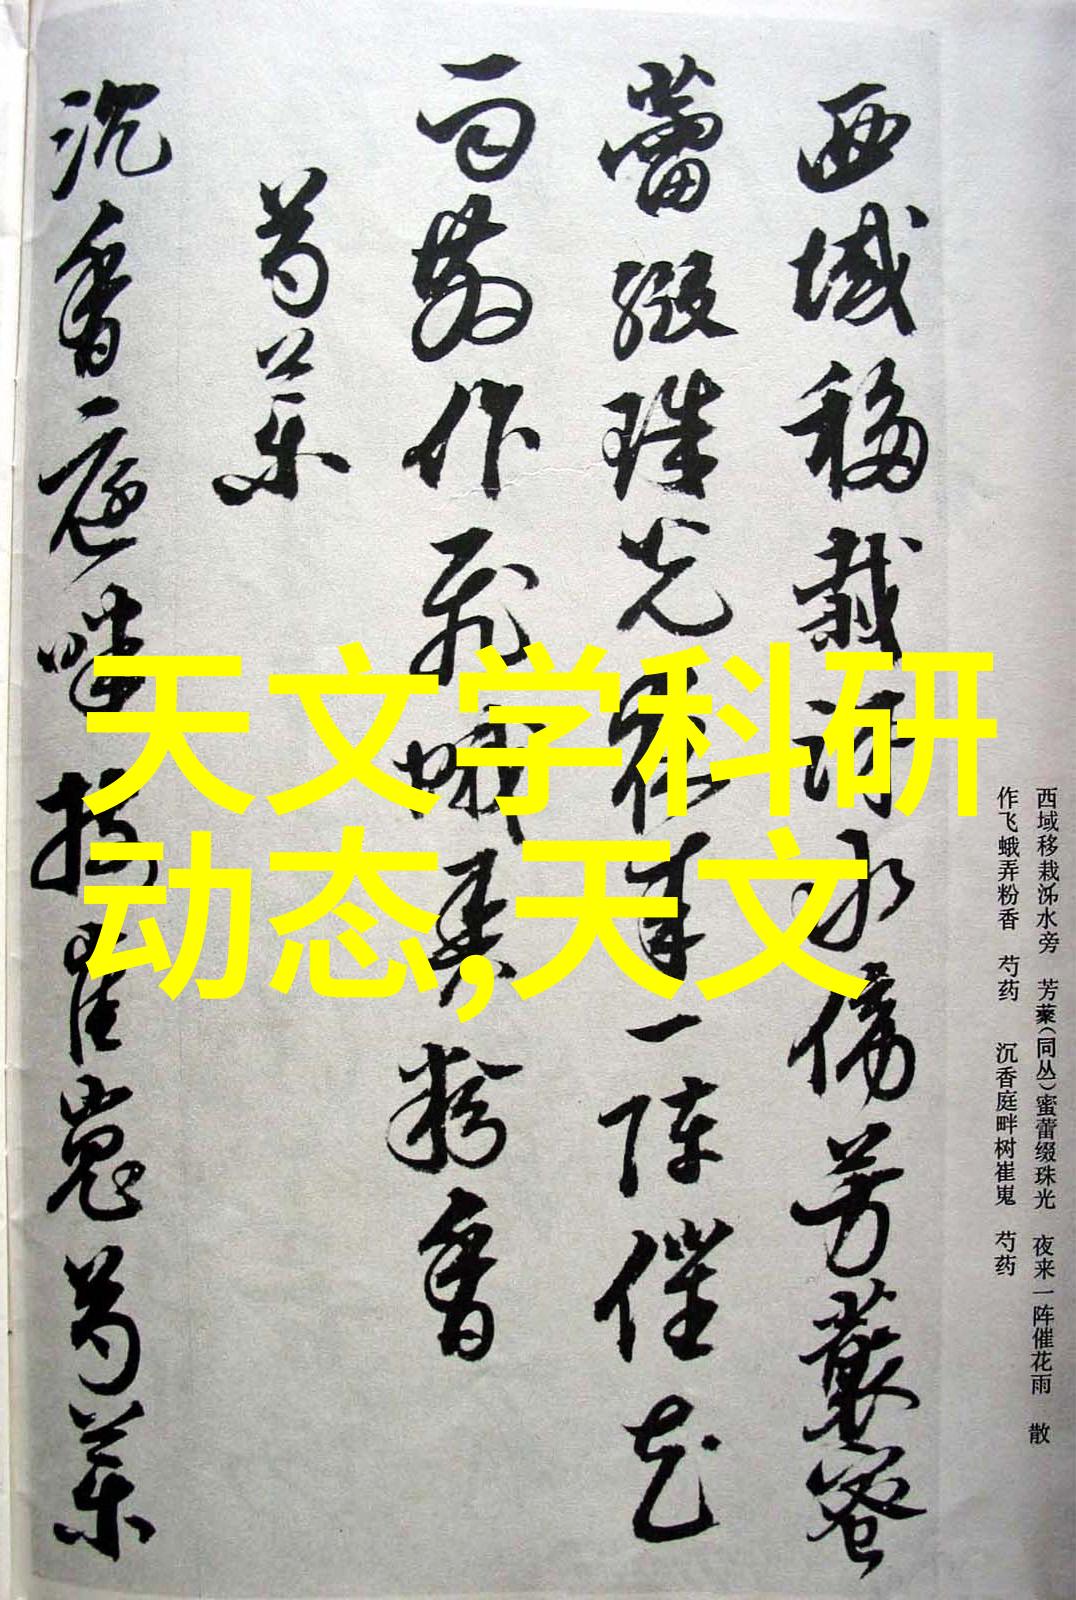 西域移栽泺水傍芳藂蜜
蕾缀珠光夜来一阵催花
雨散作飛蛾弄粉香
芍药
沉香庭畔树崔嵬芍药
西域移栽泺水旁 芳藂（同丛）蜜蕾缀珠光 夜来一阵催花雨 散
作飞蛾弄粉香 芍药 沉香庭畔树崔嵬 芍药
天文学科研
动态,天文